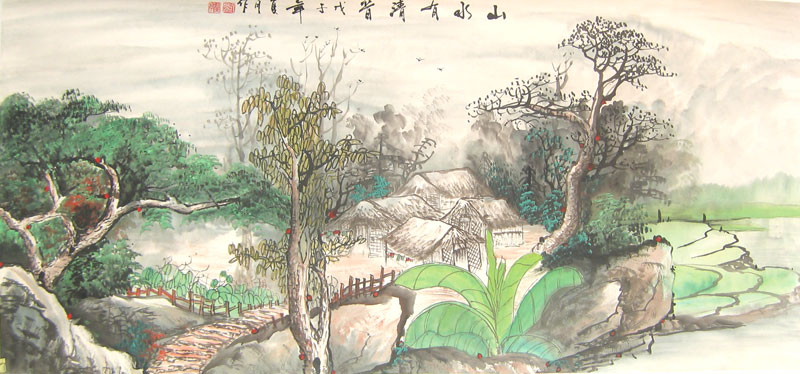 山水有清音 戊子年夏月作